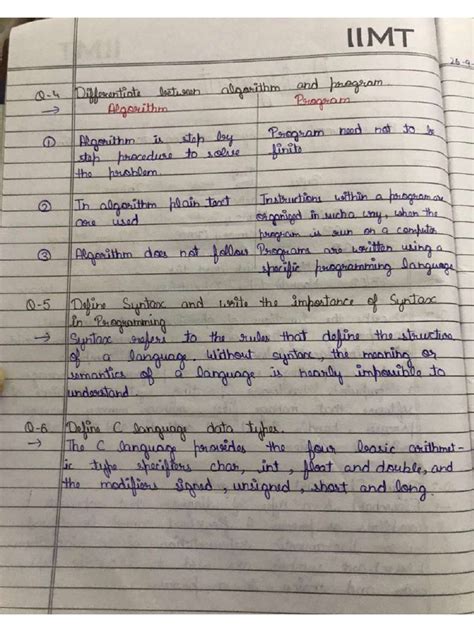 IIMT
Q-4 Differentiate between algorithm and program.
→ Algorithm Program
① Algorithm is step by Program need not to be
step procedure to solve finite
the problem
② In algorithm plain text Instructions within a program are
are used organized in such a way, when the
program is run on a computer
③ Algorithm does not follow Programs are written using a
specific programming language
Q-5 Define Syntax and write the importance of Syntax
in Programming
→ Syntax refers to the rules that define the structure
of a language. Without syntax, the meaning or
semantics of a language is nearly impossible to
understand.
Q-6 Define C language data types.
→ The C language provides the four basic arithmet-
ic type specifiers char, int, float and double, and
the modifiers signed, unsigned, short and long.